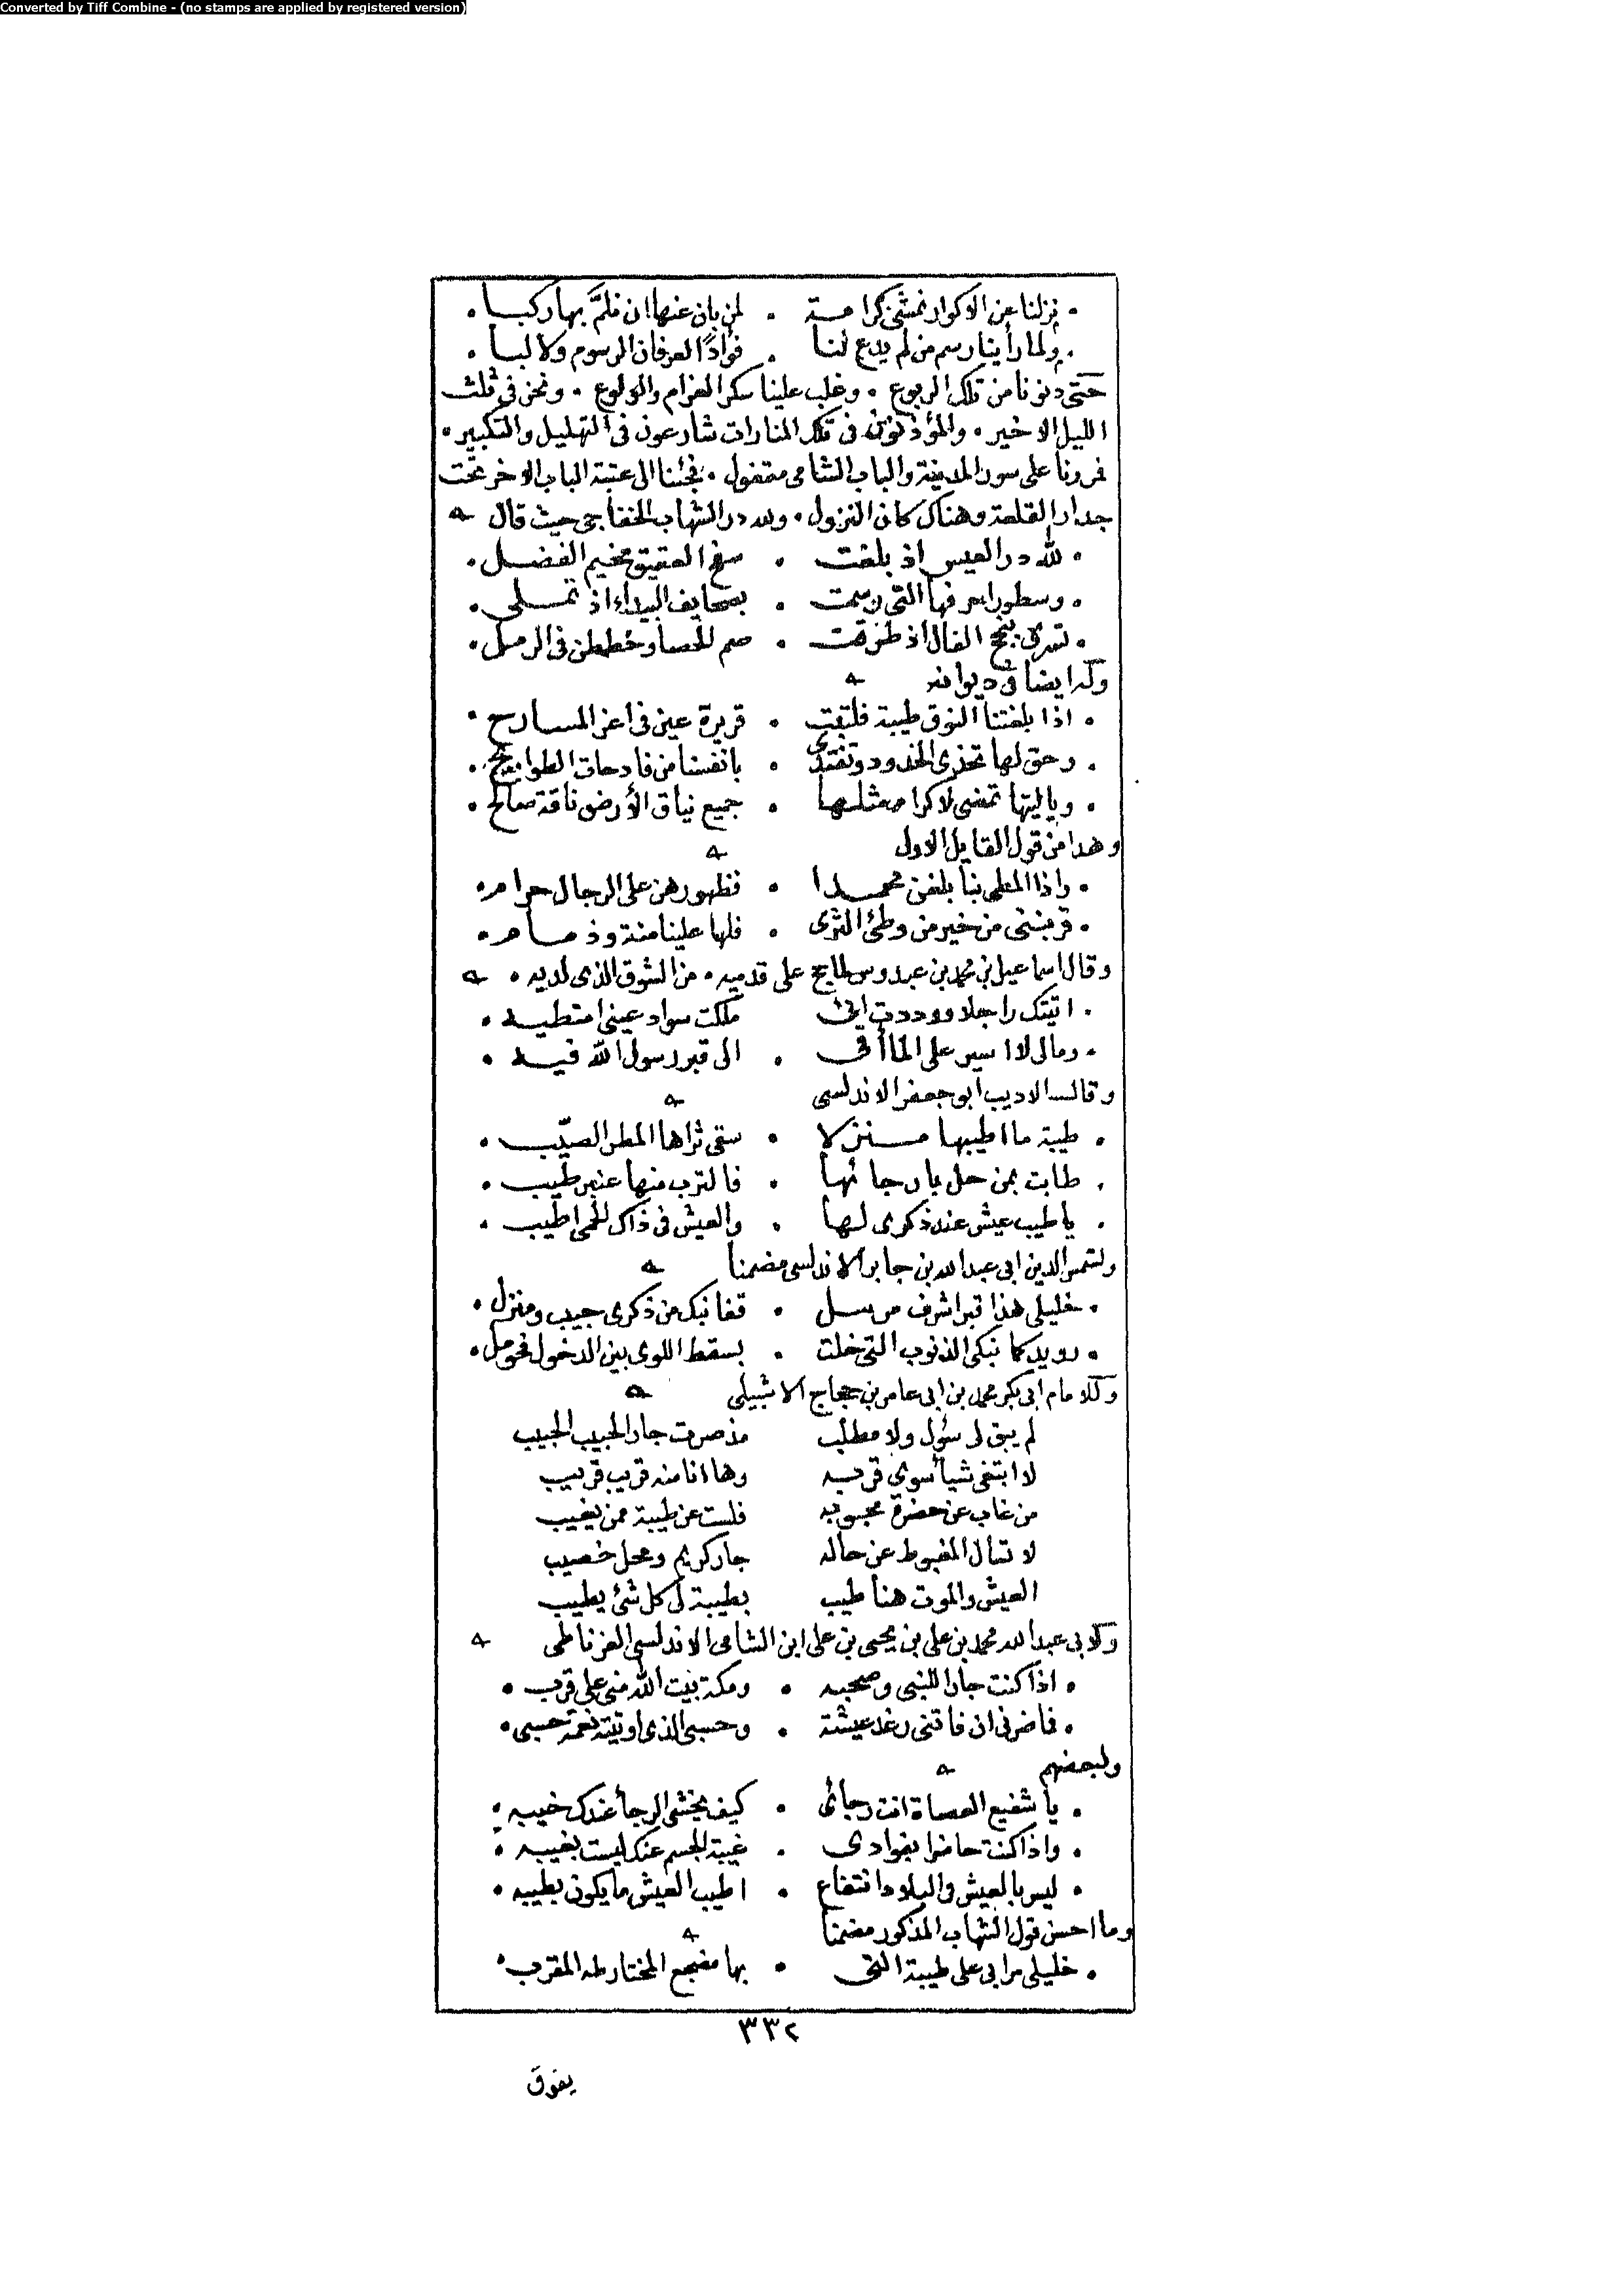 Converted by Tiff Combine - (no stamps are applied by registered version)
• نزلنا عن الاكوار نمشى كرامة • لمن بان عنها ان نلمَّ بها ركبا •
• ولما رأينا رسم من لم يدع لنا • فؤادًا لعرفان الرسوم ولا لبا •
حتى دنونا من تلك الربوع • وغلب علينا سكر الغرام والولوع • ونحن فى ثلث
الليل الاخير • والمؤذنون فى تلك المنارات شارعون فى التهليل والتكبير •
فمررنا على سور المدينة والباب الشامى مقفول • فجئنا الى عتبة الباب الاخر تحت
جدار القلعة وهناك كان النزول • ولله در الشهاب الخفاجى حيث قال
• لله در العيس اذ بلغت • سفح العقيق مخيم الفضل •
• وسطور احرفها التى رسمت • بصحايف البيداء اذ تملى •
• تسرى بنجح الفال اذ طرقت • صم الحصا وخططن فى الرمل •
وله ايضا فى ديوانه
• اذا بلغتنا النوق طيبة فلتبت • قريرة عين فى اعز المسارح •
• وحق لها تحذى الخدود وتفتدى • بانفسنا من فادحات الطوايح •
• وياليتها تمسى لاكرامثلها • جميع نياق الأرض ناقة صالح •
وهذا من قول القايل الاول
• واذا المطى بنا بلغن محمدا • فظهورهن على الرجال حرام •
• قربننى من خير من وطئ الثرى • فلها علينا منة وذمام •
وقال اسماعيل بن محمد بن عبدوس لما حج على قدميه • من الشوق الذى لديه •
• اتيتك راجلا ووددت انى ملكت سواد عينى امتطيه •
• ومالى لا اسير على المأاقى • الى قبر رسول الله فيه •
وقال الاديب ابو جعفر الاندلسى
• طيبة ما اطيبها منزلا • سقى ثراها المطر الصيّب •
• طابت بمن حل بارجائها • فالترب منها عنبر طيب •
• ياطيب عيش عند ذكرى لها • والعيش فى ذاك الحمى اطيب •
ولشمس الدين ابى عبدالله بن جابر الاندلسى مضمنا
• خليلى هذا قبر اشرف مرسل • قفا نبك من ذكرى حبيب ومنزل •
• رويدكما نبكى الذنوب التى خلت • بسقط اللوى بين الدخول فحومل •
وللامام ابى بكر محمد بن ابى عامر بن حجاج الاشبيلى
لم يبق لى سؤل ولا مطلب مذ صرت جار الحبيب الحبيب
لا ابتغى شيأ سوى قربه وها انا منه قريب قريب
من غاب عن حضرة محبوبه فلست عن طيبة ممن يغيب
لا تسأل المغبوط عن حاله جار كريم ومحل خصيب
العيش والموت هنا طيب بطيبة لى كل شئ يطيب
ولابى عبدالله محمد بن على بن يحيى بن على ابن الشامى الاندلسى الغرناطى
• اذا كنت جارا للنبى وصحبه • ومكة بيت الله منى على قرب •
• فما ضرنى ان فاتنى رغد عيشة • وحسبى الذى اوتيته نعمة حسبى •
ولبعضهم
• يا شفيع العصاة انت رجائى • كيف يخشى الرجأ عندك خيبه •
• واذا كنت حاضرا بفوادى • غيبة الجسم عنك ليست بغيبه •
• ليس بالعيش فى البلاد انتفاع • اطيب العيش ما يكون بطيبه •
وما احسن قول الشهاب المذكور مضمنا
• خليلى مرا بى على طيبة التى • بها مضجع المختار طه المقرب •
٣٣٢
يفوق